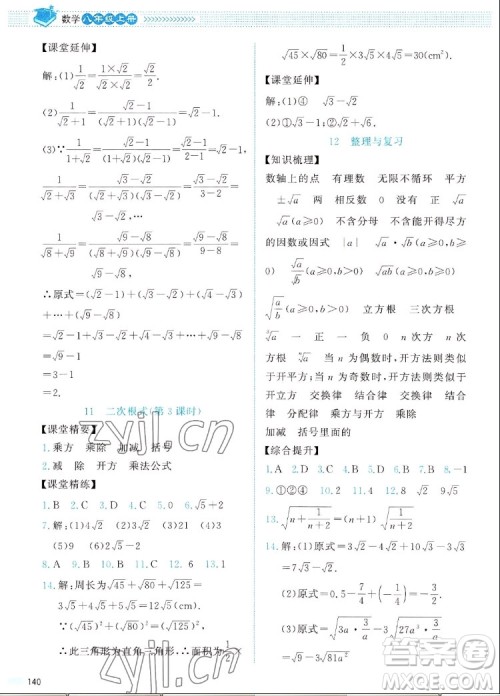 数学八年级上册
【课堂延伸】
解:(1)√(1/2)=√((1×2)/(2×2))=√2/2.
(2) 1/(√2+1)=(√2-1)/((√2+1)(√2-1))=√2-1.
(3)∵1/(√1+√2)=(√2-√1)/((√1+√2)(√2-√1))=√2-1.
1/(√2+√3)=(√3-√2)/((√2+√3)(√3-√2))=√3-√2.
…
1/(√8+√9)=(√9-√8)/((√8+√9)(√9-√8))=√9-√8.
∴原式=(√2-1)+(√3-√2)+(√4-√3)
+…+(√9-√8)
=√2-1+√3-√2+√4-√3+…+√9-√8
=3-1
=2.
11 二次根式(第3课时)
【课堂精要】
1.乘方 乘除 加减 括号
2.减 除 开方 乘法公式
【课堂精练】
1.B 2.C 3.D 4.B 5.C 6.√5+2
7.解:(1)-√2 (2)2 (3)√2 (4)3
(5)9 (6)2√2
8.A 9.D 10.B 11.0 12.6 13.1
14.解:周长为√45+√80+√125=
3√5+4√5+5√5=12√5(cm).
∵(√45)²+(√80)²=(√125)²,
∴此三角形为直角三角形,∴面积为1/2×
√45×√80=1/2×3√5×4√5=30(cm²).
【课堂延伸】
解:(1)④ √3-√2
(2)①√3-√2 ②√3-√2
12 整理与复习
【知识梳理】
数轴上的点 有理数 无限不循环 平方
±√a 两 相反数 0 没有 正 0 没有
√a(a≥0) 不含分母 不含能开得尽方
的因数或因式 |a| √a·√b(a≥0,b≥0)
√a/√b(a≥0,b>0) √ab(a≥0,b≥0)
√(a/b)(a≥0,b>0) 立方根 三次方根
∛a 一 正 一 负 0 n次方 n次方
根 奇次 偶次 当n为偶数时,开方法则类似
于开平方;当n为奇数时,开方法则类似
于开立方 交换律 结合律 交换律
结合律 分配律 乘方和开方 乘除
加减 括号里面的
【综合提升】
1.A 2.B 3.B 4.A 5.A 6.D 7.B 8.-1
9.①②④ 10.2√2 11.√5 12.4
13.√(n+1/(n+2))=(n+1)√(1/(n+2))
14.解:(1)原式=√3+4√3-√3+3√3
=7√3.
(2)原式=0.5-7/4+(-1/4)=-3/2.
(3)原式=√3a·3√(27a³/3)=3·√(9a⁴)
=9a².
140